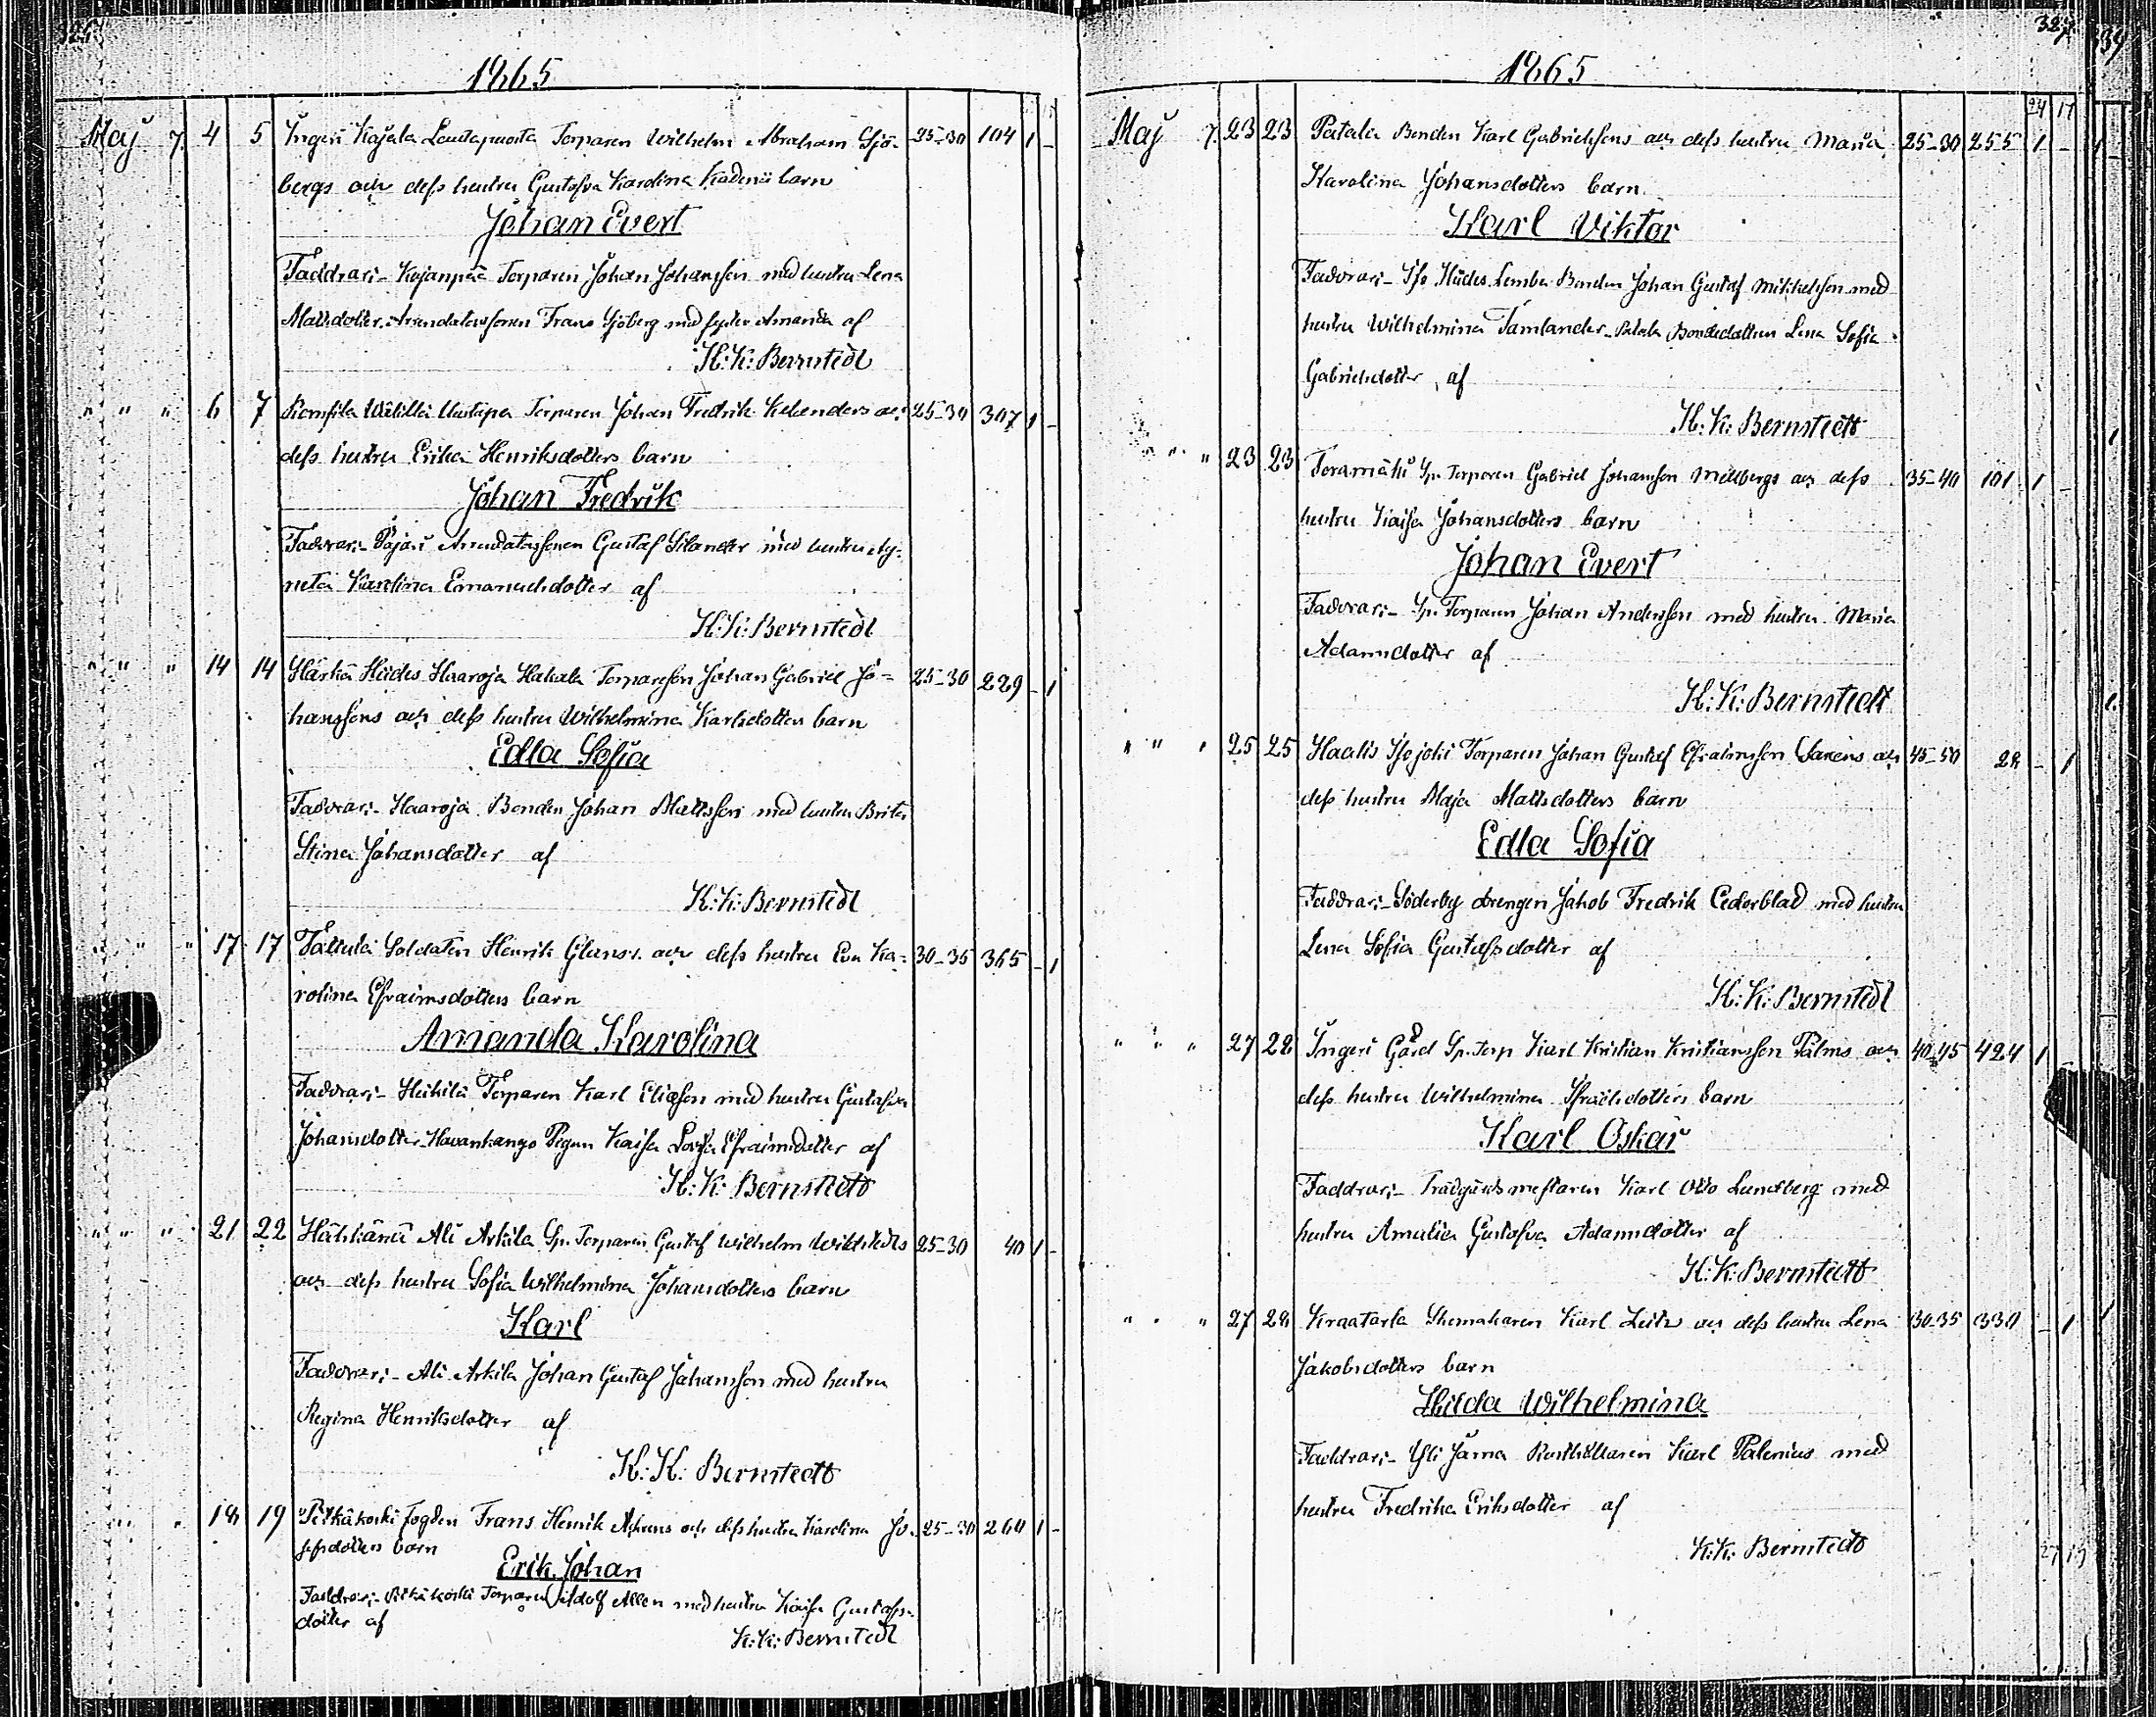 1865
Maj 7. 4 5 Ingeri Kajala Torparen Wilhelm Abraham Sjö- 25-30 104 1 -
bergs och dess hustru Gustafva Karolina barn
Johan Evert
Faddrar:- Kojanpää Torparen Johan Johansson med hustru Lena
Mattsdotter. Arendatorsonen Frans Sjöberg med syster Amanda af
K: K: Bernstedt
" " " 6 7 Torparen Johan Fredrik och 25-30 307 1 -
dess hustru Erika Henriksdotters barn
Johan Fredrik
Faddrar:- Pajari Arendatorssonen Gustaf Silander med hustru Ag-
neta Karolina Emanuelsdotter af
K: K: Bernstedt
" " " 14 14 Härkä Haaroja Hakala Torparesson Johan Gabriel Jo- 25-30 229 - 1
hanssons och dess hustru Wilhelmina Karlsdotters barn
Edla Sofia
Faddrar:- Haaroja Bonden Johan Mattsson med hustru Brita
Stina Johansdotter af
K: K: Bernstedt
" " " 17 17 Tattula Soldaten Henrik och dess hustru Eva Ka- 30-35 365 - 1
rolina Efraimsdotters barn
Amanda Karolina
Faddrar:- Heikilä Torparen Karl Eliasson med hustru Gustafva
Johansdotter. Pigan Kaisa Lovisa Efraimsdotter af
K: K: Bernstedt
" " " 21 22 Ali Arkila Sp. Torparen Gustaf Wilhelm Wikstedts 25-30 40 1 -
och dess hustru Sofia Wilhelmina Johansdotters barn
Karl
Faddrar:- Ali Arkila Johan Gustaf Johansson med hustru
Regina Henriksdotter af
K: K: Bernstedt
" " " 18 19 Pitkäkoski fogden Frans Henrik och dess hustru Karolina Jo- 25-30 260 1 -
sefsdotters barn
Erik Johan
Faddrar:- Pitkäkoski Torparen Adolf Allen med hustru Kaisa Gustafs-
dotter af
K: K: Bernstedt
327
1865
24 17
Maj 7. 23 23 Patala Bonden Karl Gabrielssons och dess hustru Maria 25-30 255 1 -
Karolina Johansdotters barn
Karl Viktor
Faddrar:- Bonden Johan Gustaf Mikkelsson med
hustru Wilhelmina Tamlander. Patala Bondedottren Lena Sofia
Gabrielsdotter, af
K: K: Bernstedt
" " " 23 23 Toramäki Sp. Torparen Gabriel Johansson Mellbergs och dess 35-40 101 1 -
hustru Kaisa Johansdotters barn
Johan Evert
Faddrar:- Sp. Torparen Johan Andersson med hustru Maria
Adamsdotter af
K: K: Bernstedt
" " " 25 25 Haalis Isojoki Torparen Johan Gustaf Efraimsson och 45-50 28 - 1
dess hustru Maja Mattsdotters barn
Edla Sofia
Faddrar:- Söderby drengen Jakob Fredrik Cederblad med hustru
Lena Sofia Gustafsdotter af
K: K: Bernstedt
" " " 27 28 Ingeri Gård Sp. torp Karl Kristian Kristiansson Palms och 40-45 424 1 -
dess hustru Wilhelmina Israelsdotters barn
Karl Oskar
Faddrar:- Trädgårdsmestaren Karl Otto Lundberg med
hustru Amalia Gustafva Adamsdotter af
K: K: Bernstedt
" " " 27 28 Kraatarla Skomakaren Karl och dess hustru Lena 30-35 330 - 1
Jakobsdotters barn
Hilda Wilhelmina
Faddrar:- Yli Jama Rusthållaren Karl Palenius med
hustru Fredrika Eriksdotter af
K: K: Bernstedt
27 19